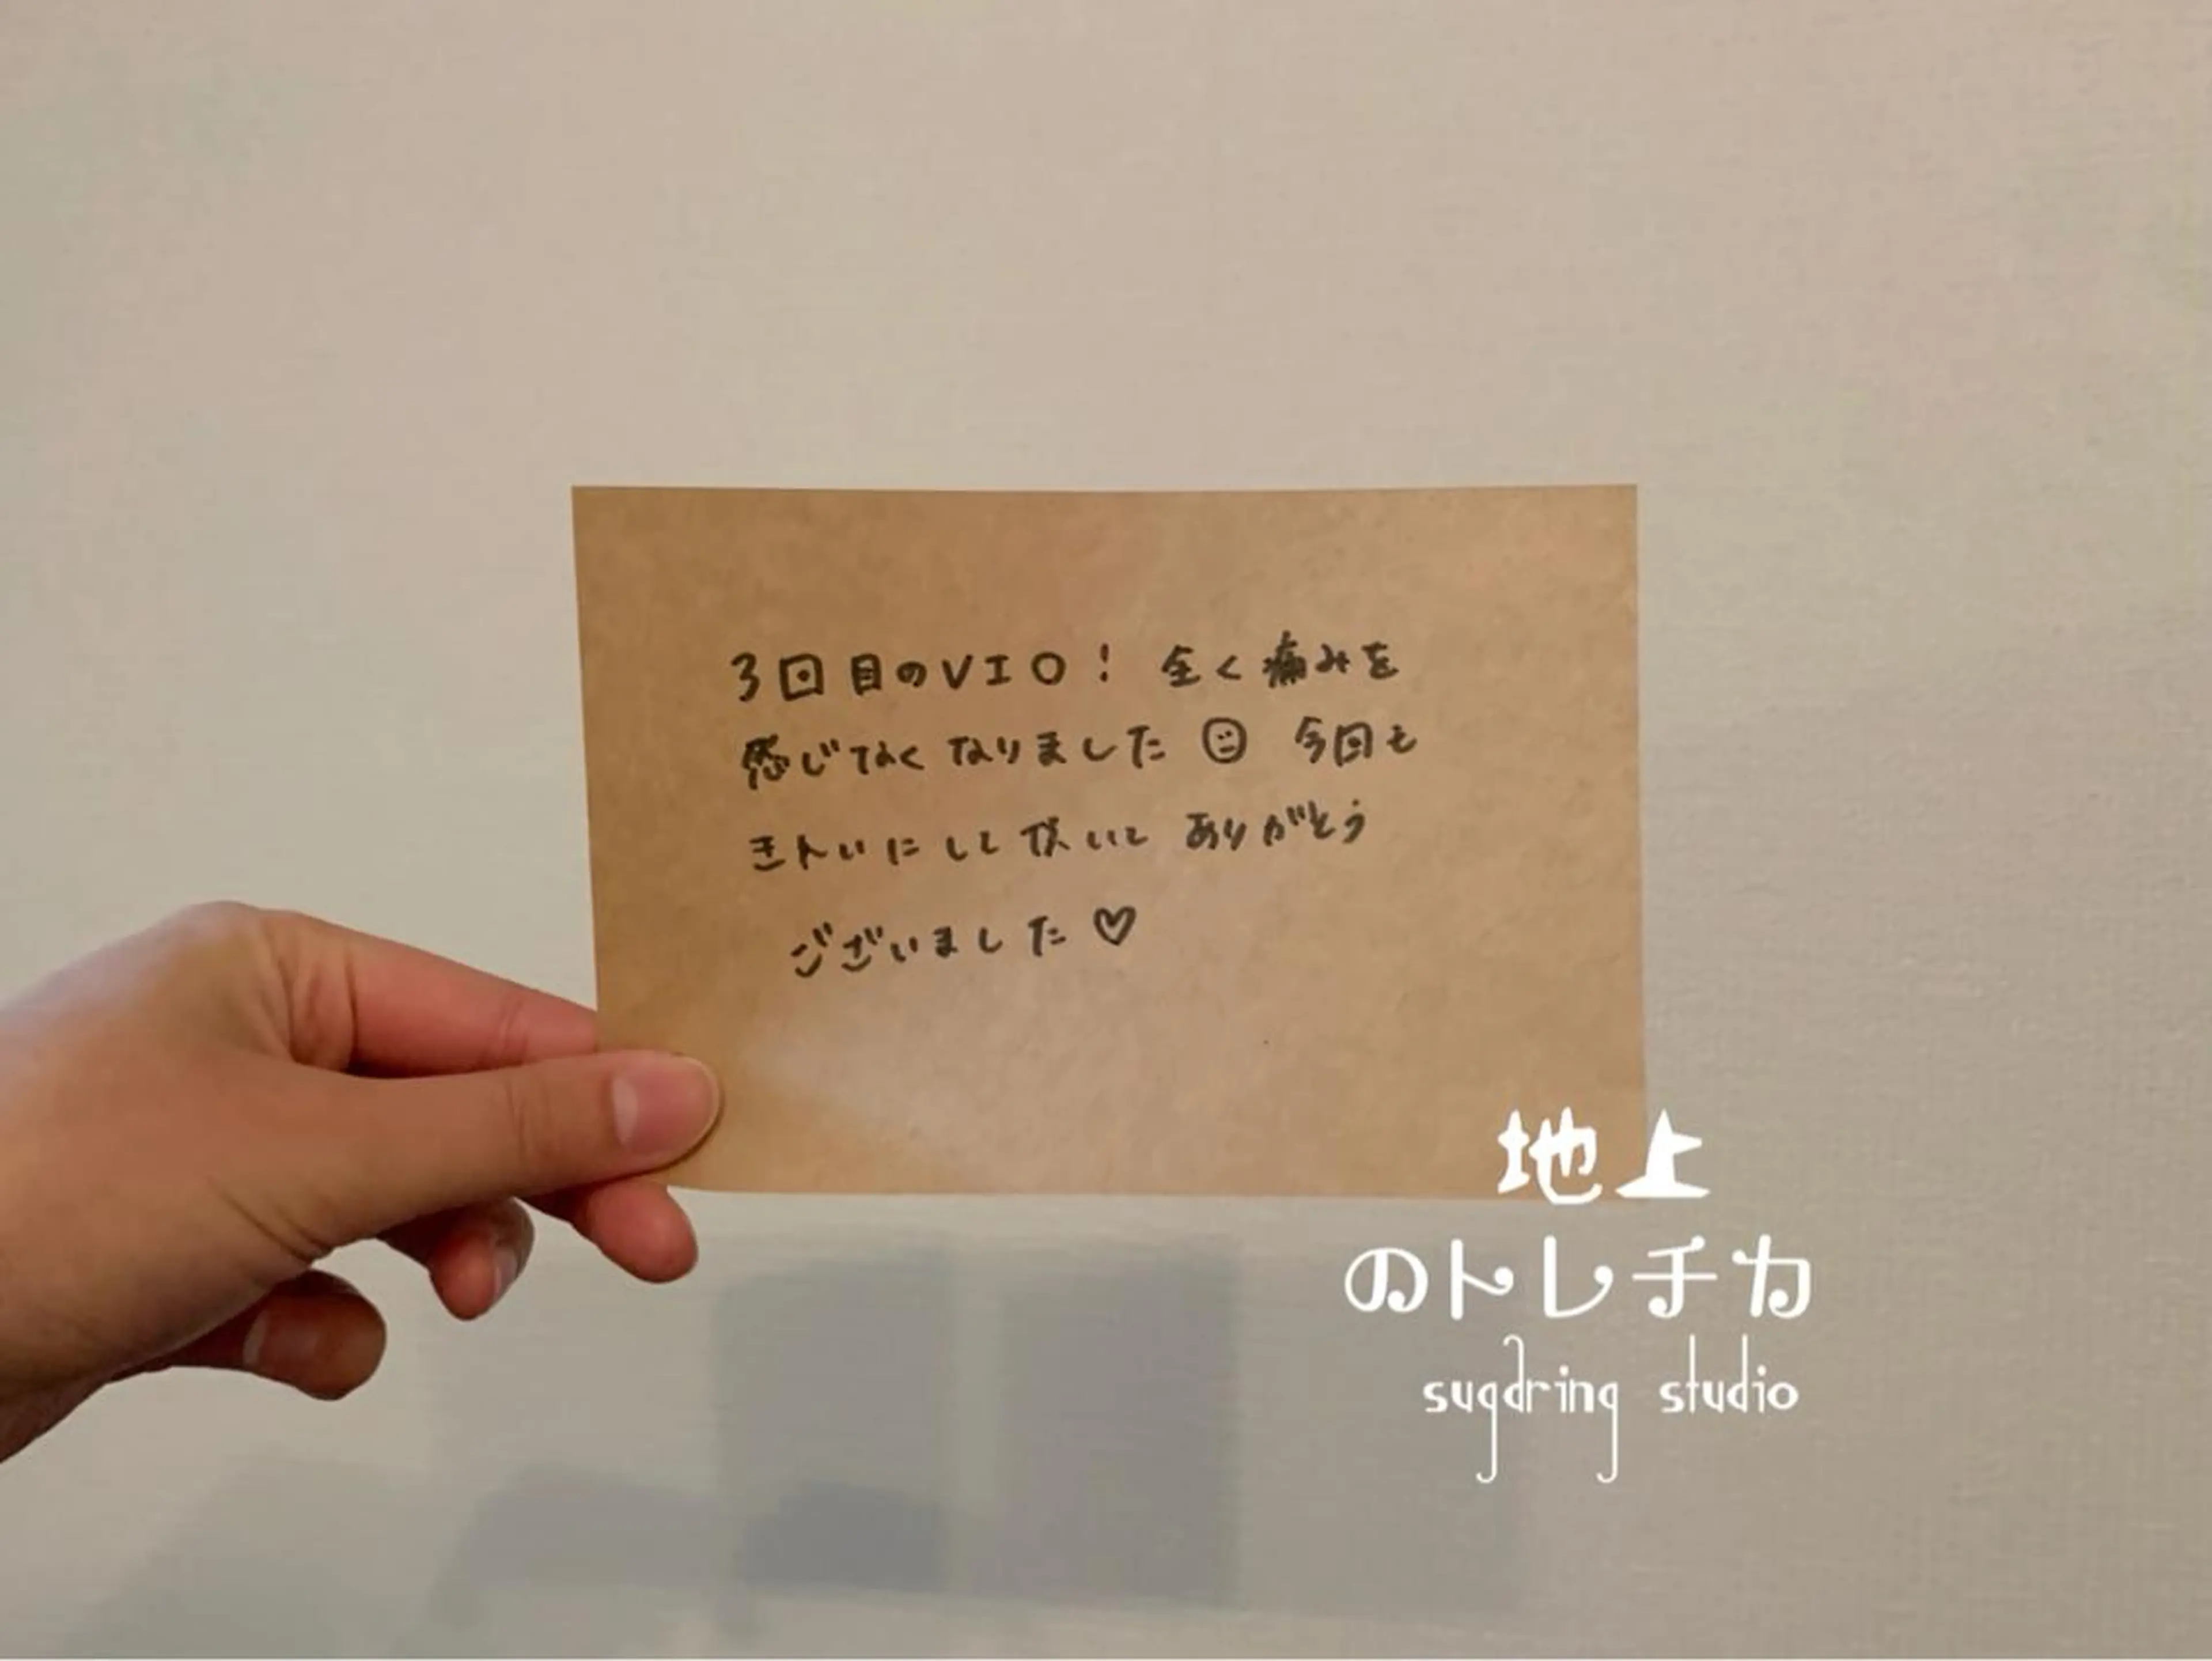 3回目のVIO! 全く痛みを
感じなくなりました☺ 今回も
きれいにして頂いて ありがとう
ございました♡
地上
のトレチカ
sugaring studio